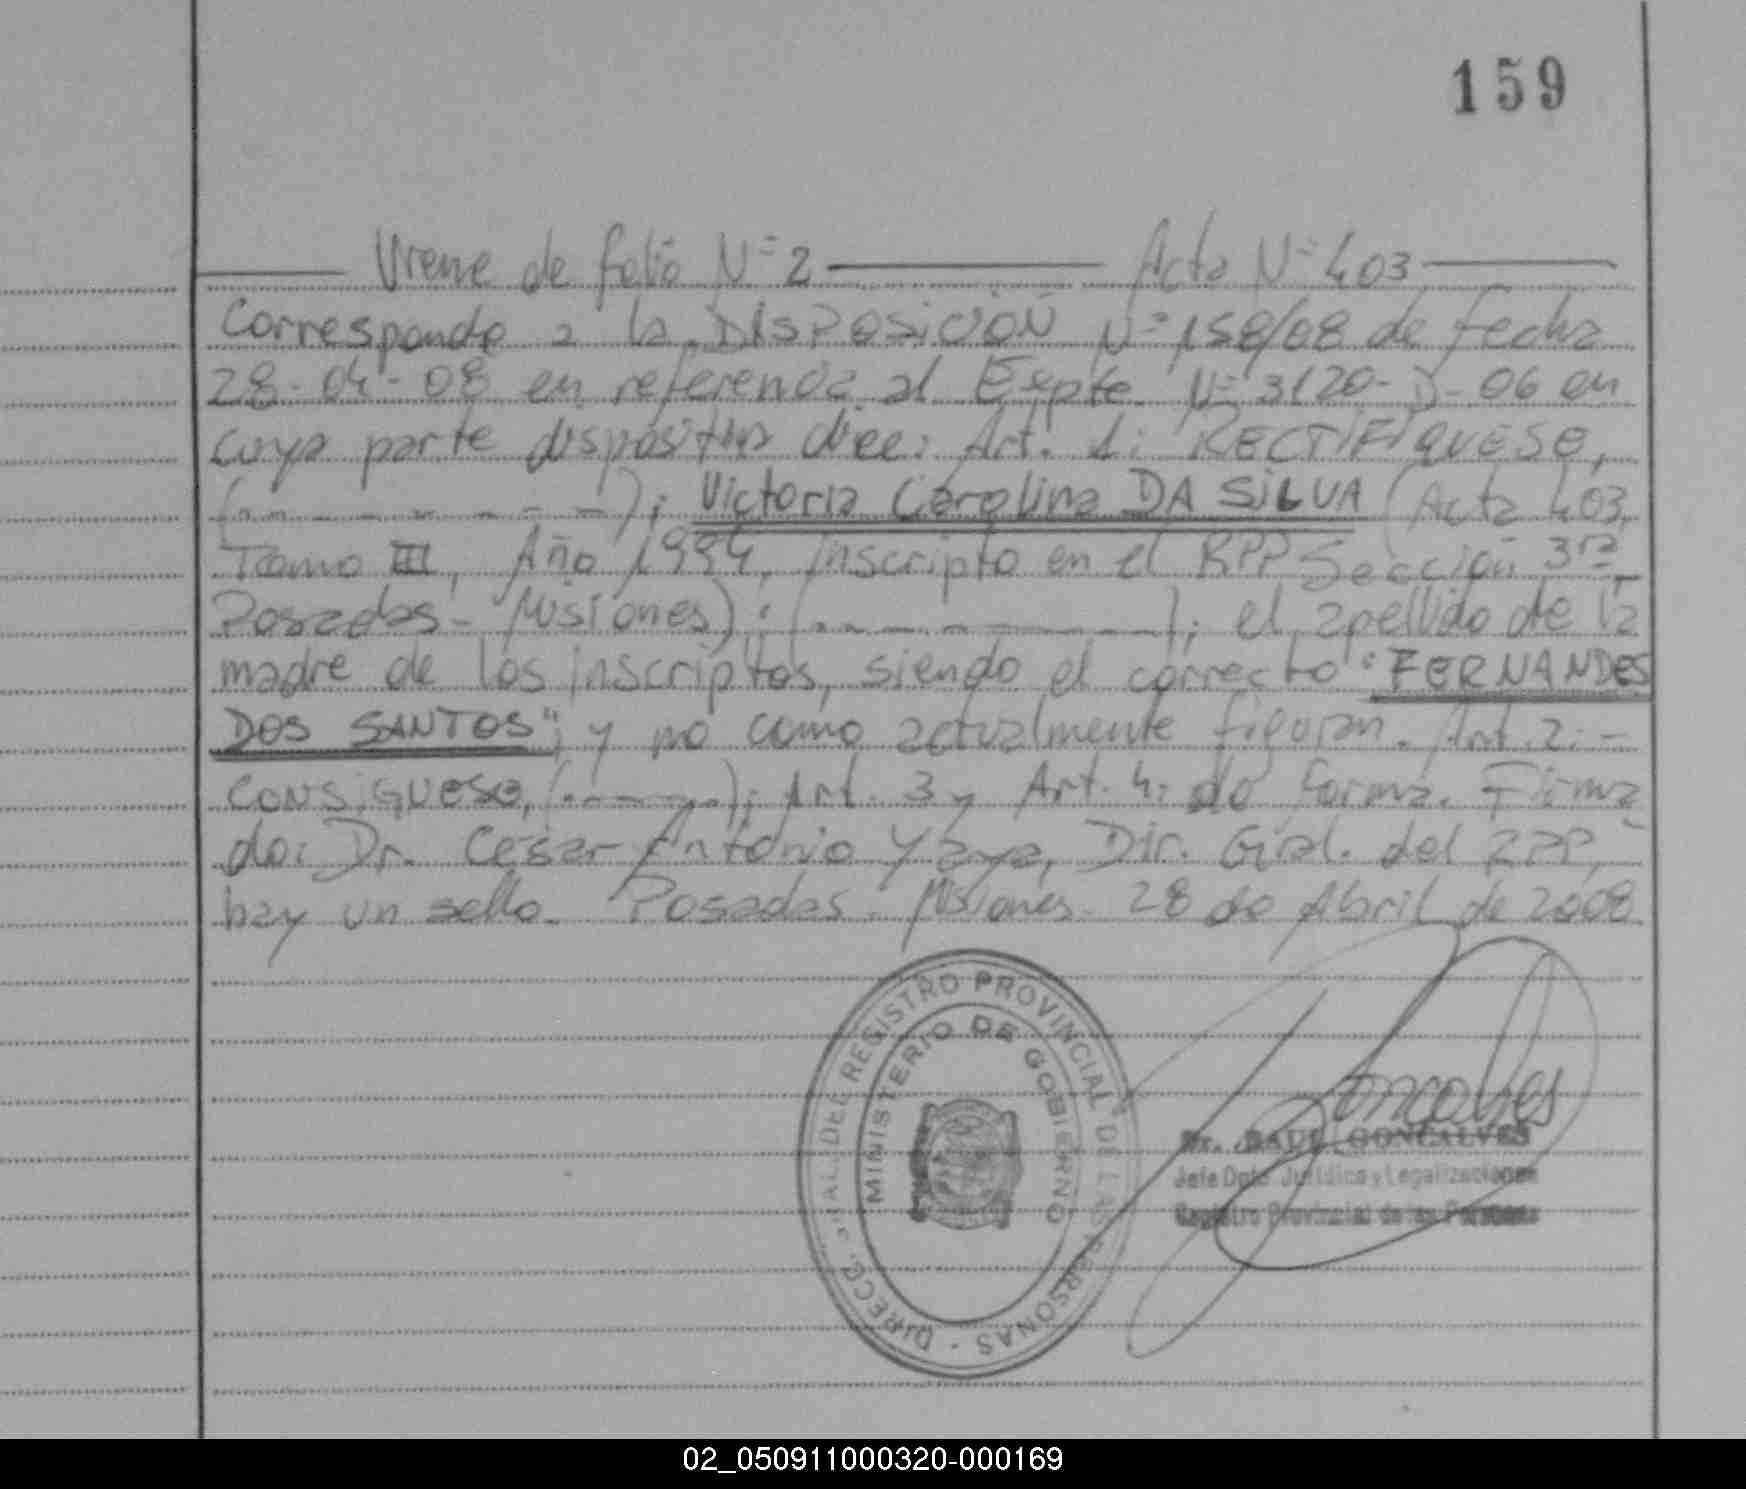 159
Viene de folio N° 2 ——— Acta N° 403 ———
Corresponde a la DISPOSICIÓN N° 158/08 de fecha
28-04-08 en referencia al Expte. N° 3120-D-06 en
cuya parte dispositiva dice: Art. 1: RECTIFIQUESE,
(- - - - - - -); Victoria Carolina DA SILVA (Acta 403,
Tomo III, Año 1994, inscripto en el RPP Sección 3ra
Posadas - Misiones); (- - - - - - -); el apellido de la
madre de los inscriptos, siendo el correcto "FERNANDES
DOS SANTOS"; y no como actualmente figuran. Art. 2: -
CONSIGUESE, (- - - - -); Art. 3 y Art. 4: de forma. Firma
do: Dr. Cesar Antonio Yzaya, Dir. Gral. del RPP,
hay un sello. Posadas. Misiones. 28 de Abril de 2008
DIRECC. GRAL DEL REGISTRO PROVINCIAL DE LAS PERSONAS -
MINISTERIO DE GOBIERNO
Goncalves
Dr. RAUL GONCALVES
Jefe Dpto. Jurídico y Legalizaciones
Registro Provincial de las Personas
02_050911000320-000169